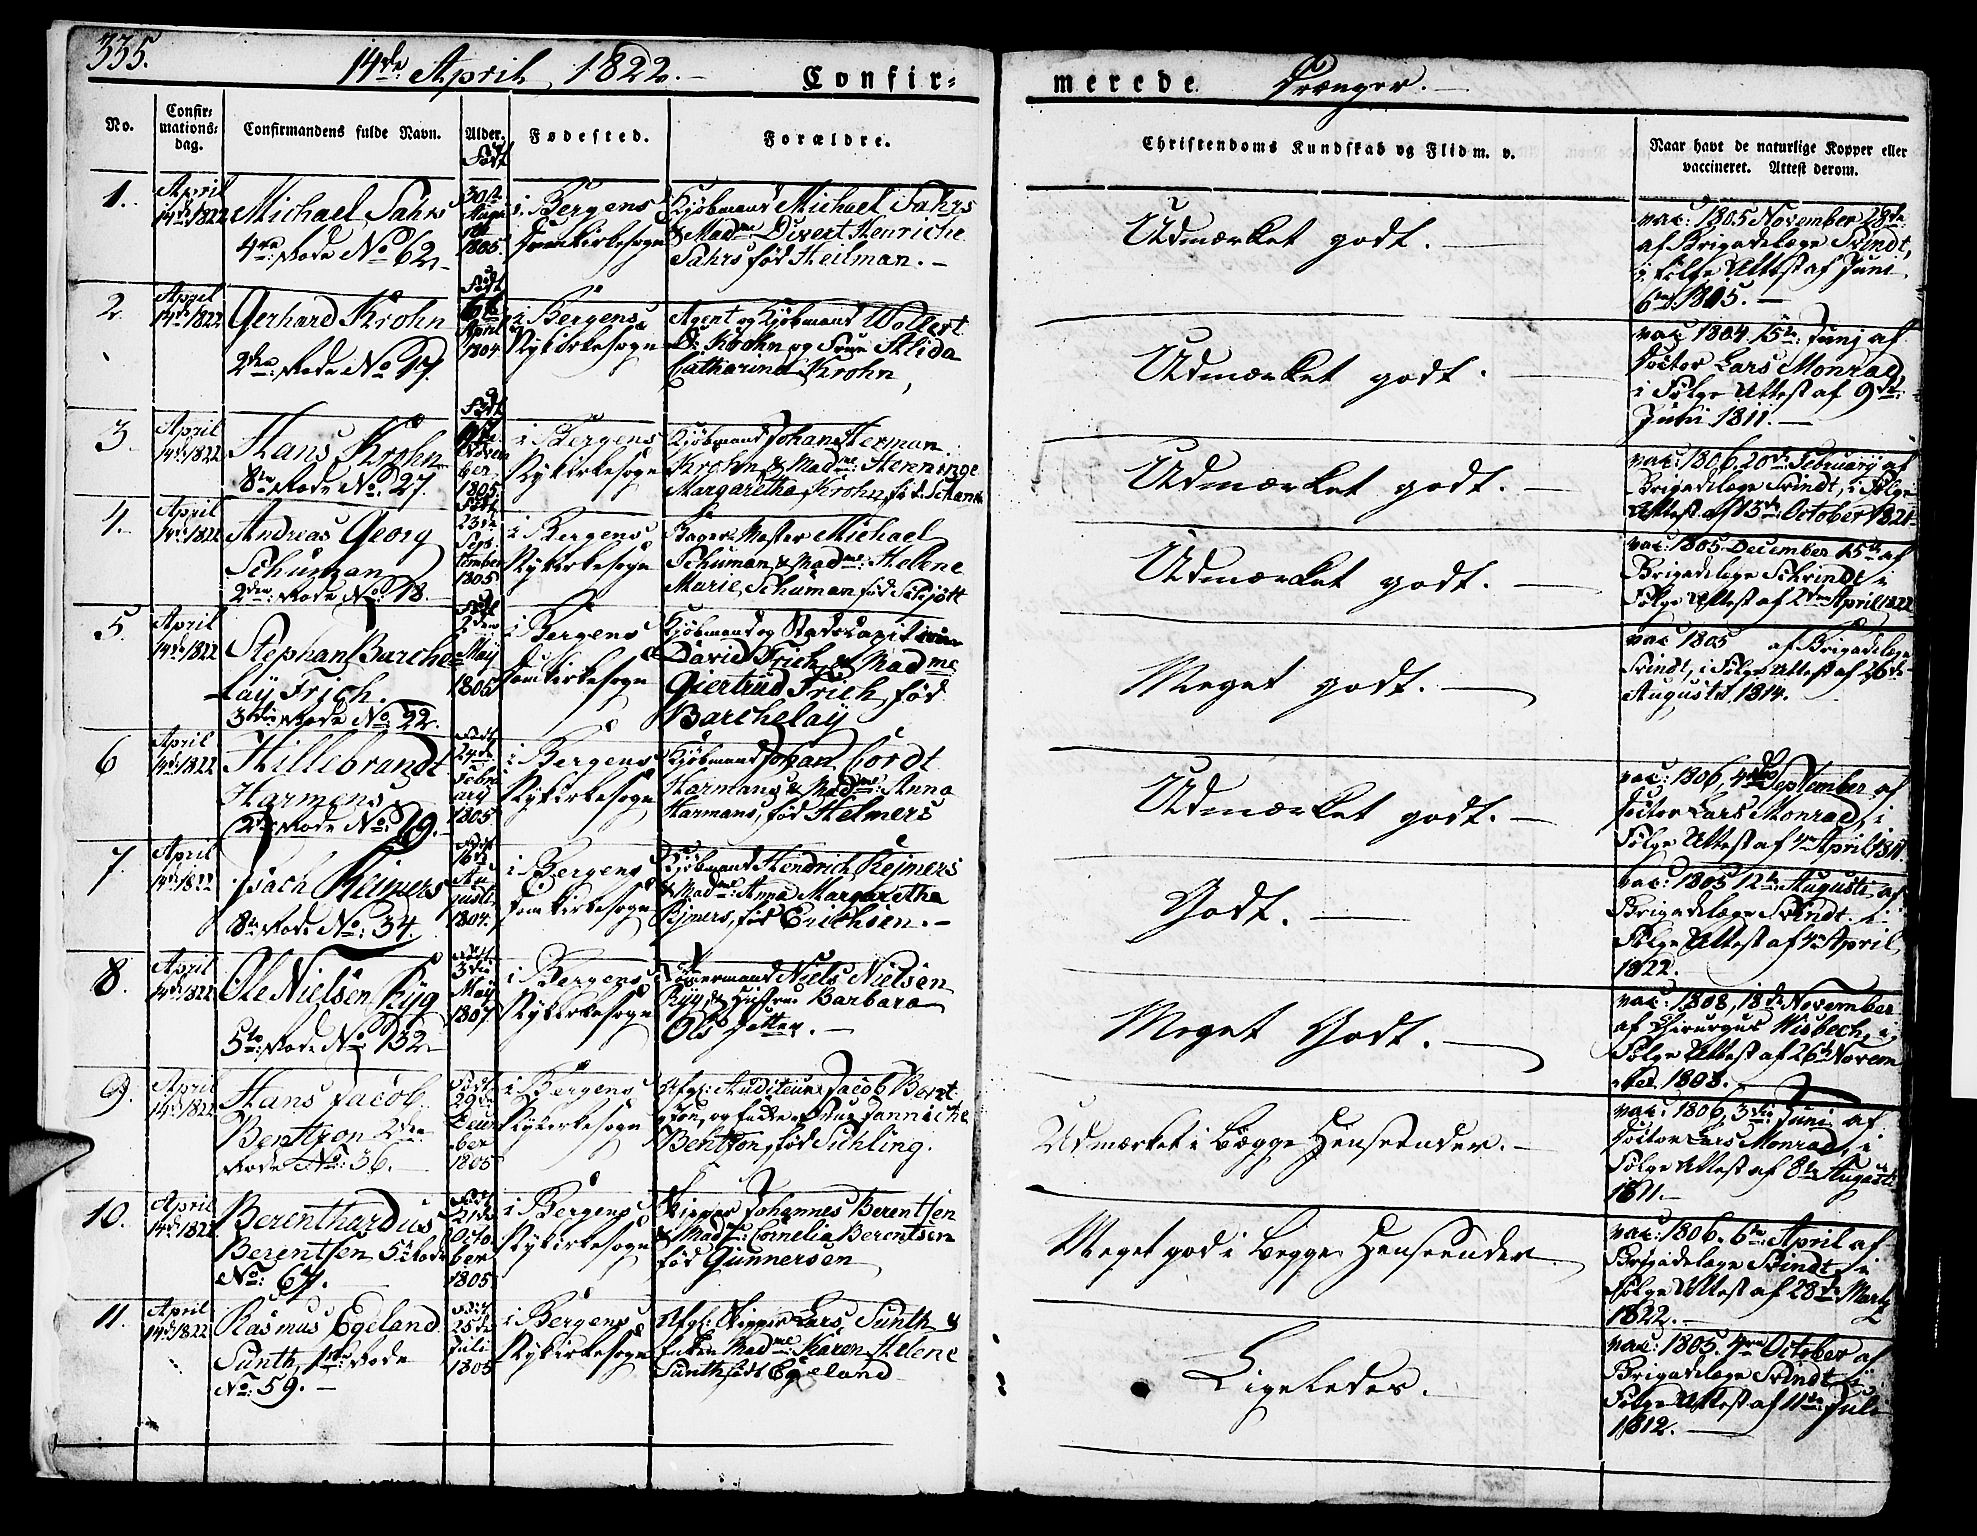 335.
14de April 1822.
Confir-
merede Drænger.
No.
Confir-
mations-
dag.
Confirmandens fulde Navn.
Alder.
Fødested.
Forældre.
Christendoms Kundskab og Flid m. v.
Naar havt de naturlige Kopper eller
vaccineret. Attest derom.
1.
April
14de 1822
Michael Sahrs
4de Rode No 62.
Født
30te
Augu
ist
1805.
i Bergens
Domkirkesogn
Kjøbmand Michael Sahrs
& Madme Divert Henriche
Sahrs født Heilman.
Udmærket godt.
vac: 1805 November 28de
af Brigadelæge Svindt,
i følge Attest af Juni
6te 1815.
2
April
14de 1822
Gerhard Krohn
2den Rode No 17.
Født
6te
April
1804
i Bergens
Nykirkesogn
Agent og Kjøbmand Wollert
D: Krohn og Frue Alida
Catharina Krohn,
Udmærket godt.
vac 1804 15de Junj af
Doctor Lars Monrad,
i Følge Attest af 9de
Juni 1811.
3
April
14de 1822
Hans Krohn
8de Rode No. 27.
Født
Novem
ber
1805.
i Bergens
Nykirkesogn
Kjøbmand Johan Herman
Krohn & Madme: Henninge
Margaretha Krohn, fød: Schanche
Udmærket godt.
vac: 1806. 20de February af
Brigadelæge Svindt, i Følge
Attest af 15de October 1821
4.
April
14de 1822
Andreas Georg
Schuman
2den: Rode No: 18.
Født
23de
Sep
tember
1805
i Bergens
Nykirkesogn
Bager Mester Michael
Schuman & Madme: Helene
Marie Schuman fød
Udmærket godt.
vac: 1805 December 15de af
Brigadelæge Schvindt i
Følge Attest af 2den April 1822
5.
April
14de 1822
Stephan Barche
lay Frich.
3die Rode No. 22.
Født
2den
May
1805
i Bergens
Domkirkesogn
Kjøbmand og Stadscapitain
David Frich & Madme
Giertrud Frich, fød
Barchelaÿ
Meget godt.
vac 1805 af Brigadelæge
Svindt, i Følge Attest af 26de
Augusti 1814.
6
April
14de 1822
Hillebrandt
Harmens
2den Rode No: 29.
Født
24de
Febru
ary
1805
i Bergens
Nykirkesogn
Kjøbmand Johan Cordt
Harmans & Madme: Anna
Harmans, fød Helmers
Udmærket godt.
vac: 1806, 4de September af
Doctor Lars Monrad, i
Følge Attest af 4de April 1811
7.
April
14de 1822
Isach Reimers
8de Rode No: 34.
Født
16de
Au
gusti
1804.
i Bergens
Domkirkesogn
Kjøbmand Hendrich Rejmers
& Madme: Anna Margaretha
Rejmers, fød Erichsen.
Godt.
vac: 1805 12te Augusti af
Brigadelæge Svindt. i
Følge Attest af 4de April
1822.
8.
April
14de 1822
Ole Nielsen Ryg
5te: Rode No 152
Født
3die
May
1807.
i Bergens
Nykirkesogn
Tømmermand Niels Nielsen
Ryg, & Hustrue Barbara
Ols Datter.
Meget Godt.
vac: 1808, 18de November
af Chirurgus Wisbech, i
Følge Attest af 26de Novem
ber 1808.
9.
April
14de 1822
Hans Jacob
Bentzon 2den
Rode No: 36.
Født
29de
ber
1805
i Bergens
Nykirkesogn
Afg: Auditeur Jacob Bent
zon, og Enke Frue Jannicke
Bentzon, fød Suhling.
Udmærket i begge Henseender.
vac: 1806 3die Juni af
Doctor Lars Monrad, i
Følge Attest af 8de August
1811.
10.
April
14de 1822
Berenthardus
Berentsen 5te Rode
No: 67.
Født
21de
Octo
ber
1805
i Bergens
Nykirkesogn
Skipper Johannes Berentsen
& Madme: Cornelia Berentsen
fød Gunnersen
Meget god i begge Henseender
vac: 1806. 6te April af
Brigadelæge Svindt, i
Følge Attest af 28de Martz
1822.
11.
April
14de 1822
Rasmus Egeland
Sunth, 1ste Rode
No: 59.
Født
25de
Juli
1805
i Bergens
Nykirkesogn
Afg: Skipper Lars Sunth &
Enken Madme Karen Helene
Sunth fød Egeland
Ligeledes.
vac: 1805. 4de October af
Brigadelæge Svindt i
Følge Attest af 11te Juli
1812.